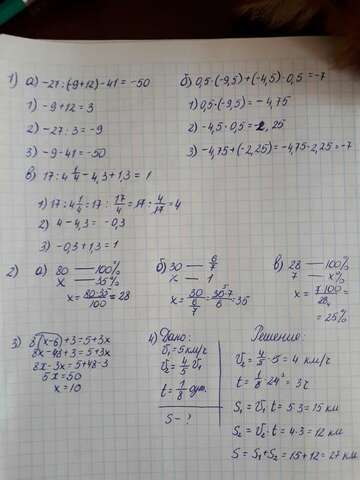 1) а) -27:(-9+12)-41=-50
1) -9+12=3
2) -27:3=-9
3) -9-41=-50
б) 0,5·(-9,5)+(-4,5)·0,5=-7
1) 0,5·(-9,5)=-4,75
2) -4,5·0,5=-2,25
3) -4,75+(-2,25)=-4,75-2,25=-7
в) 17:4 1/4-4,3+1,3=1
1) 17:4 1/4=17:17/4=17·4/17=4
2) 4-4,3=-0,3
3) -0,3+1,3=1
2) а) 80 — 100%
x — 35%
x=80·35/100=28
б) 30 — 6/7
x — 1
x=30/(6/7)=30·7/6=35
в) 28 — 100%
7 — x%
x=7·100/28=
=25%
3) 8(x-6)+3=5+3x
8x-48+3=5+3x
8x-3x=5+48-3
5x=50
x=10
4) Дано:
v₁=5км/ч
v₂=4/5 v₁
t=1/8 сут.
S-?
Решение:
v₂=4/5·5=4 км/ч
t=1/8·24=3ч
S₁=v₁·t=5·3=15 км
S₂=v₂·t=4·3=12 км
S=S₁+S₂=15+12=27 км